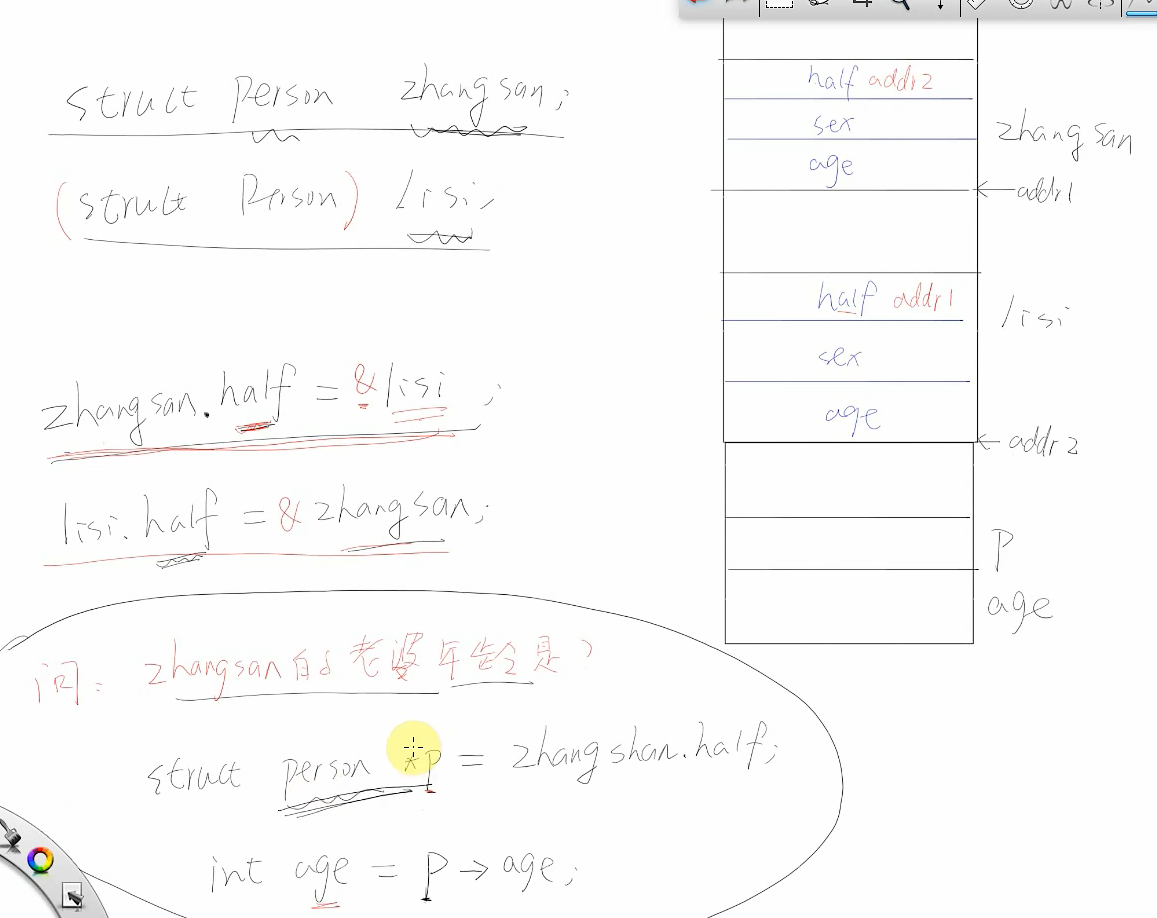 struct person zhangsan;
(struct Person) lisi;
zhangsan.half = &lisi ;
lisi.half = &zhangsan;
问: zhangsan的老婆年龄是?
struct person *p = zhangshan.half;
int age = p→age;
half addr2
sex
age
zhangsan
←addr1
half addr1
sex
age
lisi
←addr2
p
age